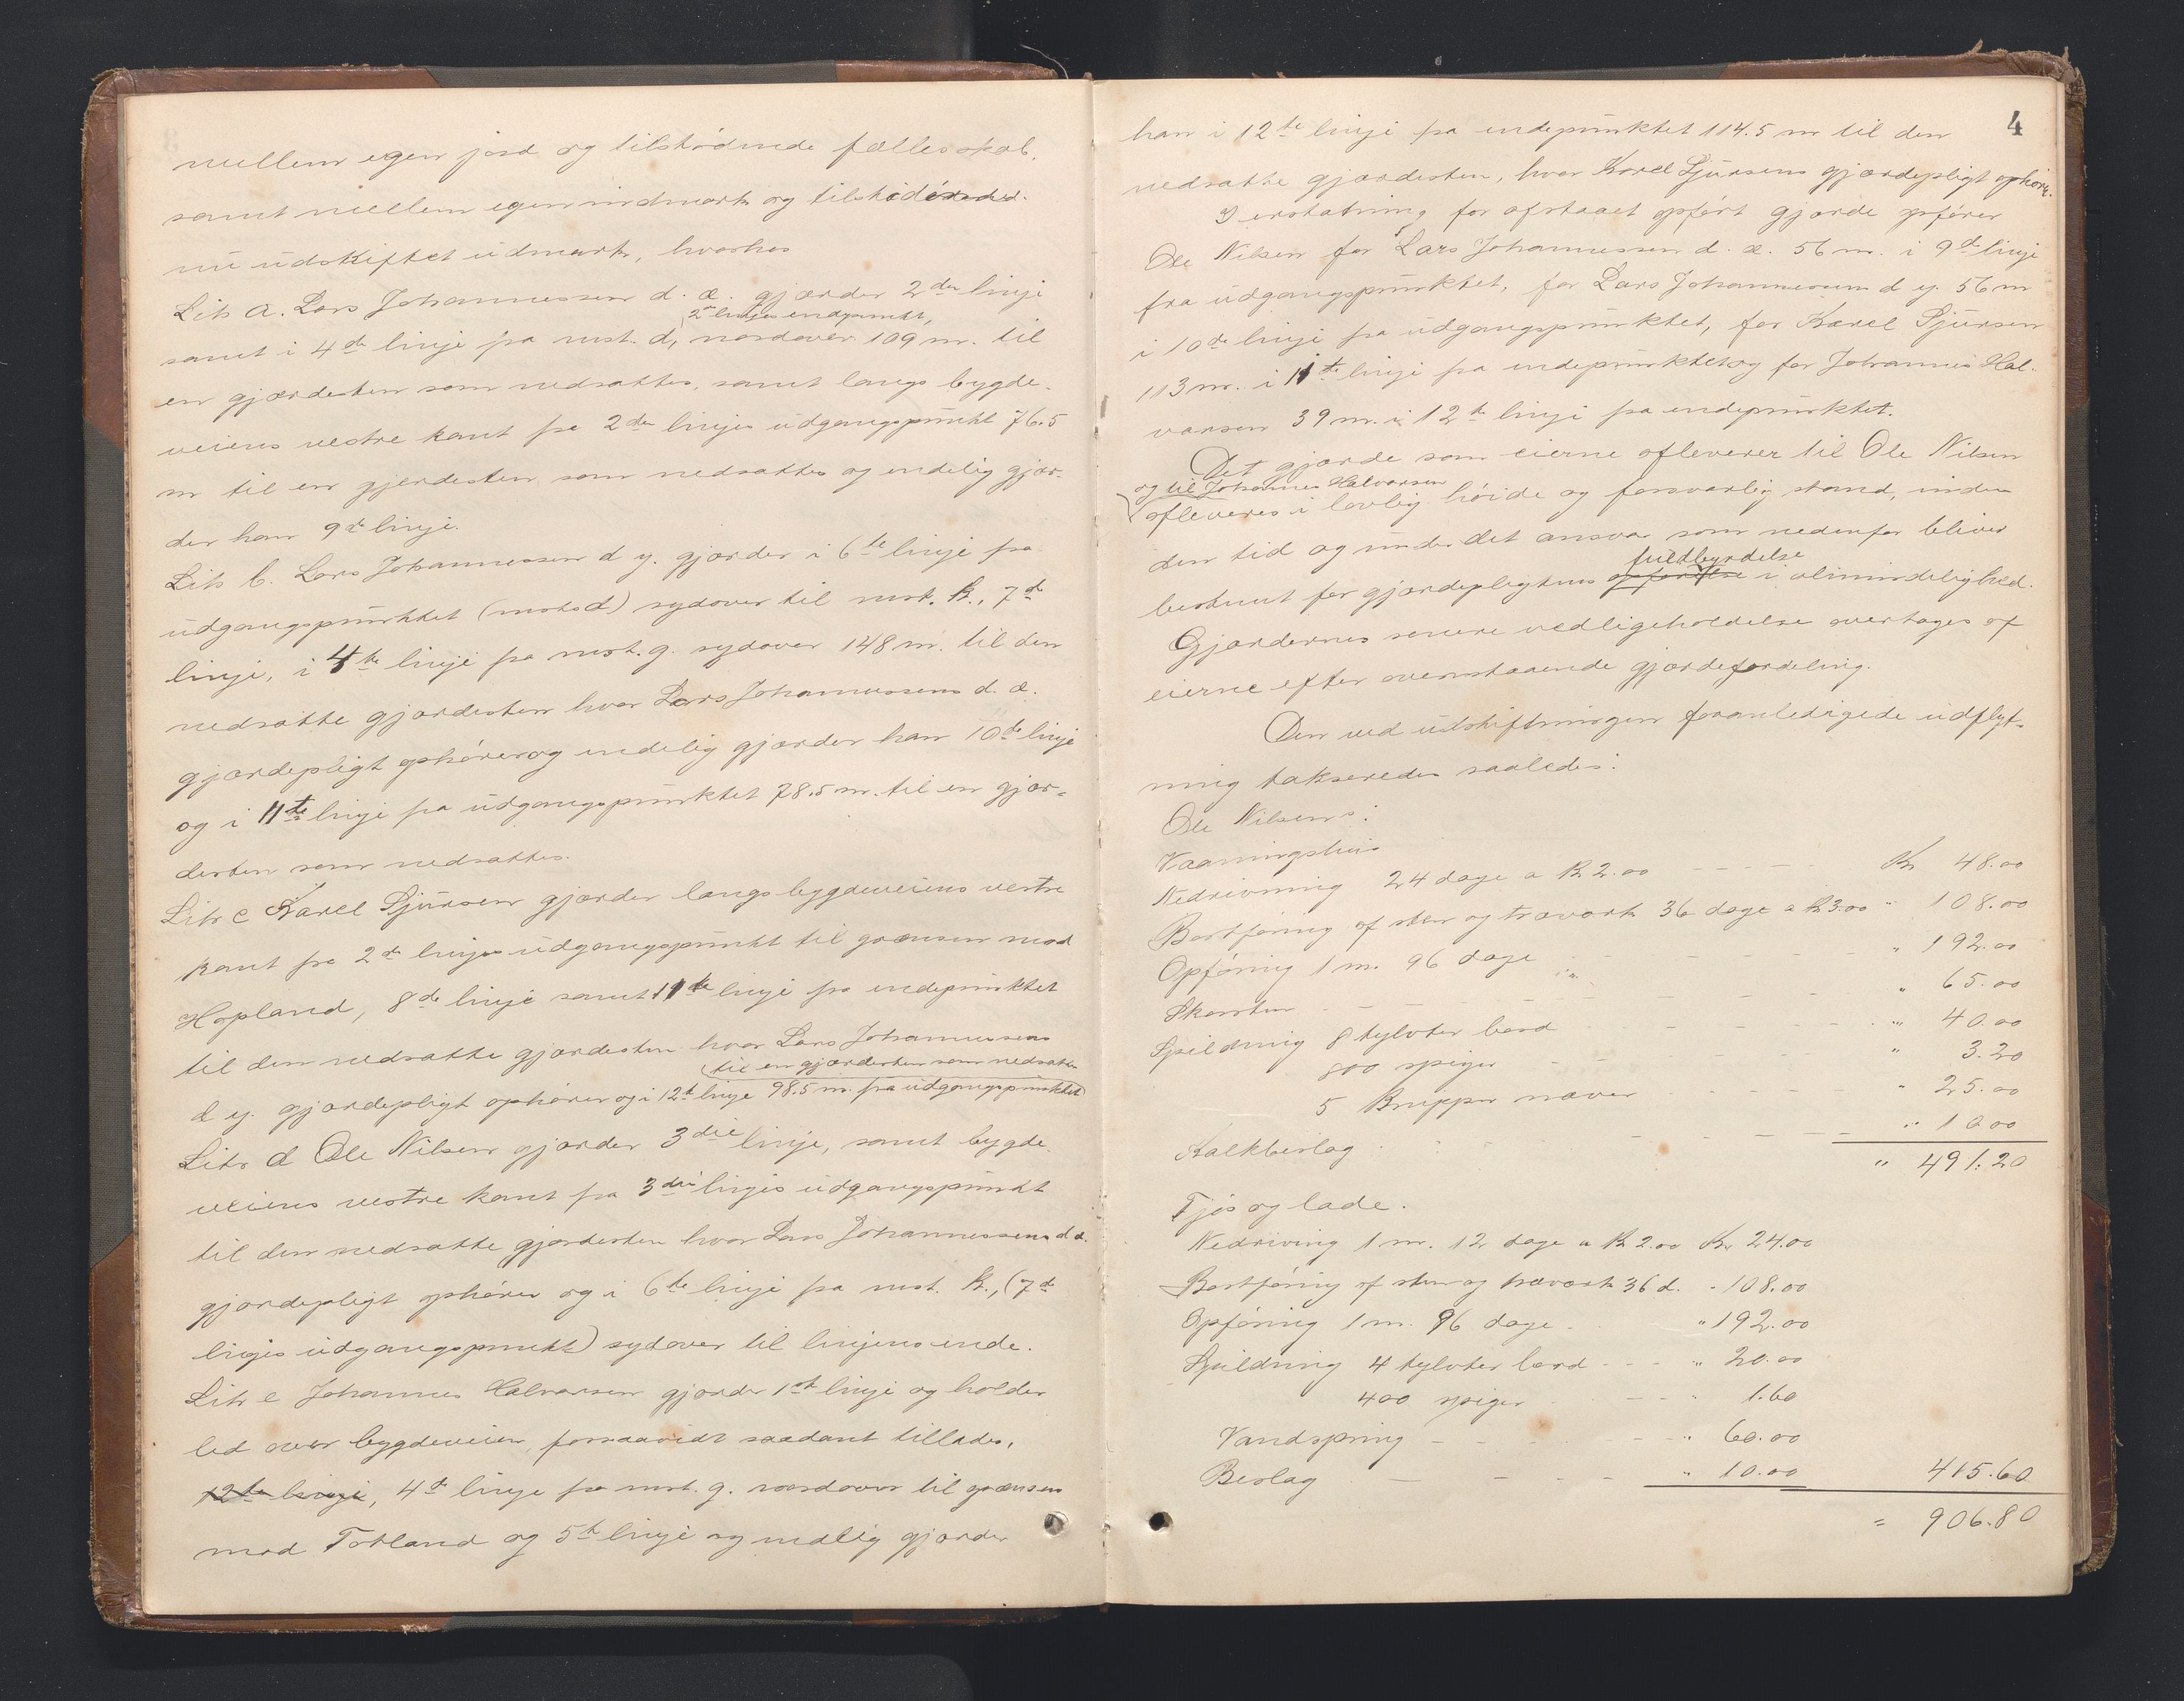 mellem egen jord og tilstödende fællesskab,
samt mellem egen indmark og tilstödende
nu udskiftet udmark, hvorhos
Litr a. Lars Johannessen d. æ. gjærder 2den linje
2den linjes endepunkt,
samt i 4de linje fra mst. d, nordover 109 m. til
en gjærdesten som nedsattes, samt langs bygde-
veiens vestre kant fra 2den linjes udgangspunkt 76.5
m til en gjerdesten som nedsattes og endelig gjær-
der han 9de linje.
Litr b. Lars Johannessen d y. gjærder i 6te linje fra
udgangspunktet (mst d) sydover til mst. k., 7de
linje, i 4de linje fra mst. g. sydover 148 m. til den
nedsatte gjærdesten hvor Lars Johannessens d. æ.
gjærdepligt ophörer og endelig gjærder han 10de linje
og i 11te linje fra udgangspunktet 78.5 m. til en gjær-
desten som nedsattes.
Litr c Karel Sjursen gjærder langs bygdeveiens vestre
kant fra 2den linjes udgangspunkt til grænsen mod
Hopland, 8de linje samt 11te linje fra endepunktet
til den nedsatte gjærdesten hvor Lars Johannessens
til en gjærdesten som nedsattes
d y. gjærdepligt ophörer og i 12te linje 98.5 m. fra udgangspunktet
Litr d Ole Nilsen gjærder 3die linje, samt bygde
veiens vestre kant fra 3die linjes udgangspunkt
til den nedsatte gjærdesten hvor Lars Johannessens d æ.
gjærdepligt ophörer og i 6te linje fra mst. k., (7de
linjes udgangspunkt) sydover til linjens ende.
Litr e Johannes Halvorsen gjærder 1ste linje og holder
led over bygdeveien, forsaavidt saadant tillades,
12te linje, 4de linje fra mst. g. nordover til grænsen
mod Totland og 5te linje og endelig gjærder
4
han i 12te linje fra endepunktet 114.5 m til den
nedsatte gjærdesten, hvor Karel Sjursens gjærdepligt ophörer.
I erstatning for afstaaet opfört gjærde opförer
Ole Nilsen for Lars Johannessen d. æ. 56 m. i 9de linje
fra udgangspunktet, for Lars Johannessen d y. 56 m
i 10de linje fra udgangspunktet, for Karel Sjursen
113 m. i 11te linje fra endepunktet og for Johannes Hal-
vorsen 39 m. i 12te linje fra endepunktet.
Det gjærde som eierne afleverer til Ole Nilsen
og til Johannes Halvorsen
afleveres i lovlig höide og forsvarlig stand, inden
den tid og under det ansvar som nedenfor bliver
fuldbyrdelse
bestemt for gjærdepligtens opförelse i almindelighed.
Gjærdernes senere vedligeholdelse overtages af
eierne efter ovenstaaende gjærdefordeling.
Den ved udskiftningen foranledigede udflyt-
ning takseredes saaledes:
Ole Nilsens:
Vaaningshus
Nedrivning 24 dage a kr 2.00 - - - - Kr 48.00
Bortföring af sten og træværk 36 dage a kr 3.00 " 108.00
Opföring 1 m. 96 dage - - - - " 192.00
Skorsten - - - - " 65.00
Spildning 8 tylvter bord - - - - " 40.00
800 spiger - - - - " 3.20
5 Knipper næver - - - - " 25.00
Kalkbeslag - - - - " 10.00
" 491.20
Fjös og lade.
Nedrivning 1 m. 12 dage a kr 2.00 Kr 24.00
Bortföring af sten og træværk 36 d. " 108.00
Opföring 1 m. 96 dage " 192.00
Spildning 4 tylvter bord - - - " 20.00
400 spiger - - " 1.60
Vandspring - - - " 60.00
Beslag - - - - " 10.00 415.60
= 906.80